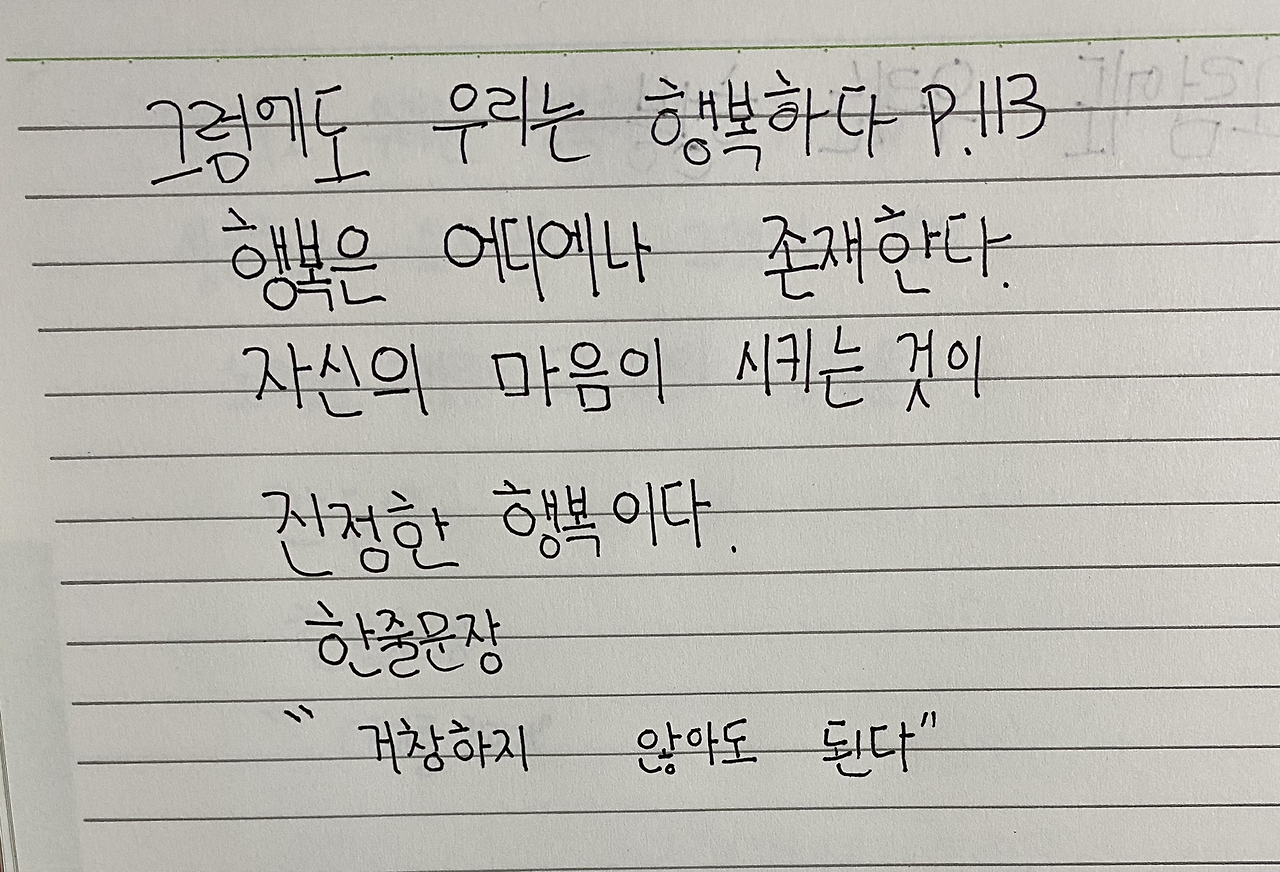 그럼에도 우리는 행복하다 P.113
행복은 어디에나 존재한다.
자신의 마음이 시키는 것이
진정한 행복이다.
한줄문장
"거창하지 않아도 된다"